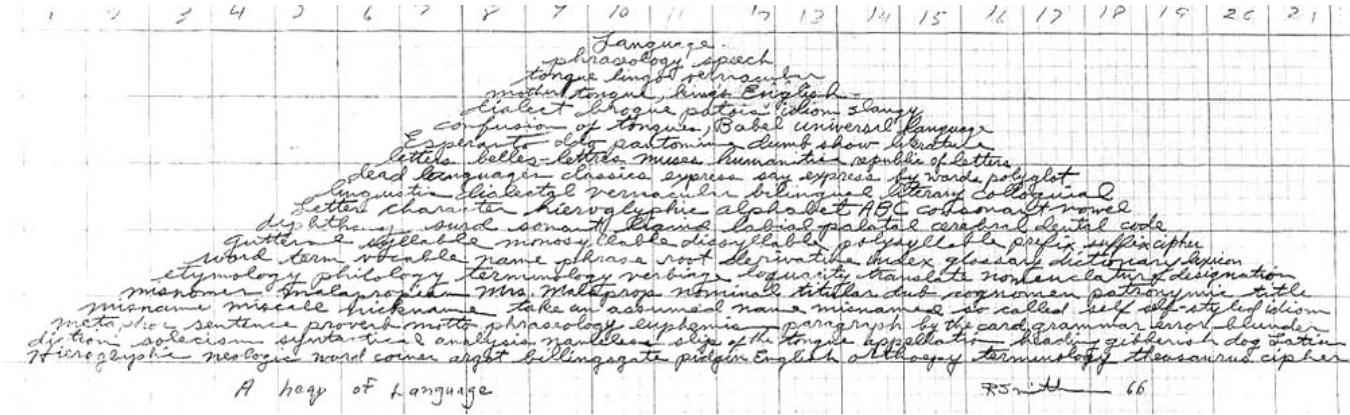 1 2 3 4 5 6 7 8 9 10 11 12 13 14 15 16 17 18 19 20 21
Language
phraseology speech
tongue lingo vernacular
mother tongue, kings English
dialect brogue patois idiom slangy
confusion of tongues, Babel universal language
Esperanto Ido pantomime dumb show literature
letters belles-lettres muses humanities republic of letters
dead languages classics express say express by words polyglot
linguistic dialectal vernacular bilingual literary colloquial
Letters character hieroglyphic alphabet ABC consonant vowel
diphthong surd sonant liquid labial palatal cerebral dental code
guttural syllable monosyllable dissyllable polysyllable prefix suffix cipher
word term vocable name phrase root derivative index glossary dictionary lexicon
etymology philology terminology verbiage loquacity translate nomenclature designation
misnomer malapropism Mrs. Malaprops nominal titular dub cognomen patronymic title
misname miscall nickname take an assumed name misnamed so called self self-styled idiom
metaphor sentence proverb motto phraseology euphemism paragraph by the card grammar error blunder
diction solecism syntactical analysis nameless slip of the tongue appellation heading gibberish dog Latin
Hieroglyphic neologic word coiner argot billingsgate pidgin English orthoepy terminology thesaurus cipher
A heap of Language
R Smithson 66